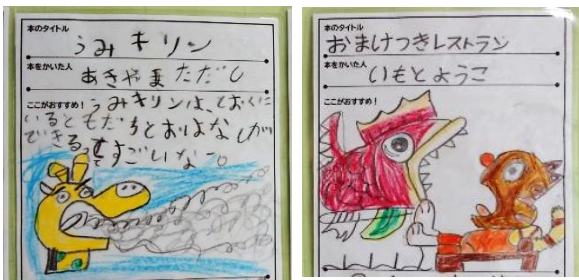 本のタイトル
うみキリン
本をかいた人
あきやまただし
ここがおすすめ!うみキリンは、とおくに
いるともだちとおはなしが
できるってすごいなー。
本のタイトル
おまけつきレストラン
本をかいた人
いもとようこ
ここがおすすめ!